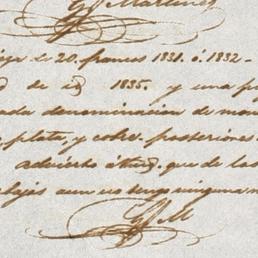 G. Martinez
de 20. francos 1831. ó 1832 -
de id 1835. y una
denominacion de
plata, y cobre. posteriores
advierto á que de las
aun no tengo ninguna
G. M